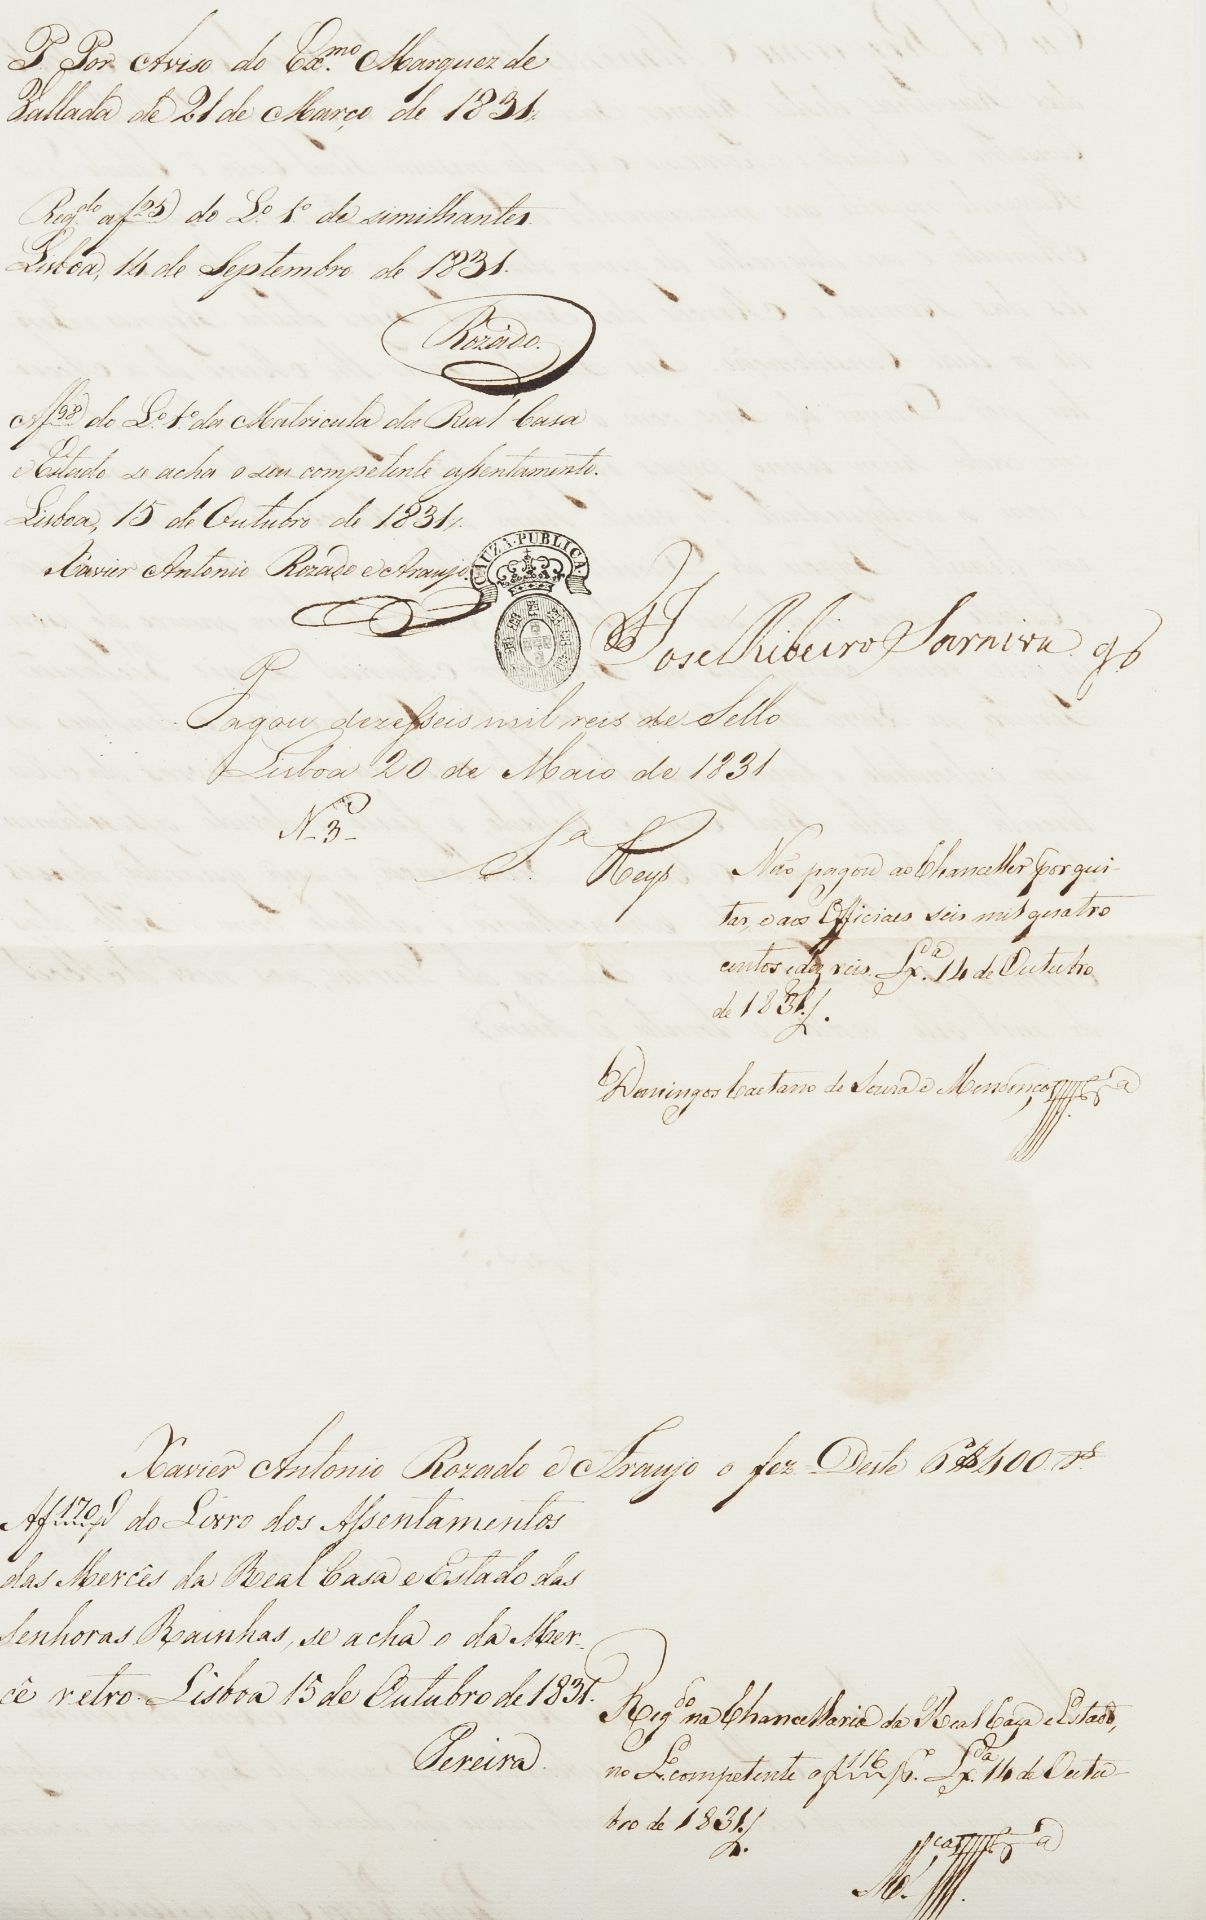 P. Por Aviso do Ex.mo Marquez de
Vallada de 21 de Março de 1831.
Reg.do a f 25 do L.o 1.o de similhantes
Lisboa, 14 de Septembro de 1831.
Rozado.
A f 98 do L.o 1.o da Matricula da Real Casa
e Estado se acha o seu competente assentamento.
Lisboa, 15 de Outubro de 1831.
Xavier Antonio Rozado e Araujo.
CAUZA PUBLICA.
Jose Ribeiro Saraiva
Pagou dezesseis mil reis de Sello
Lisboa 20 de Maio de 1831
N 3
S.a Reys
Não pagou ao Chanceller por qui-
tar, e aos Officiaes seis mil quatro
centos e dez reis. Lx.a 14 de Outubro
de 1831.
Domingos Caetano de Souza e Mendonça
Xavier Antonio Rozado e Araujo o fez Deste 6$400 rs.
A f 170 do Livro dos Assentamentos
das Mercês da Real Casa e Estado das
Senhoras Rainhas, se acha o da Mer-
cê retro. Lisboa 15 de Outubro de 1831.
Pereira.
Reg.do na Chancellaria da Real Caza e Estado,
no L.o competente a f 116. Lx.a 14 de Outu-
bro de 1831.
M.ça